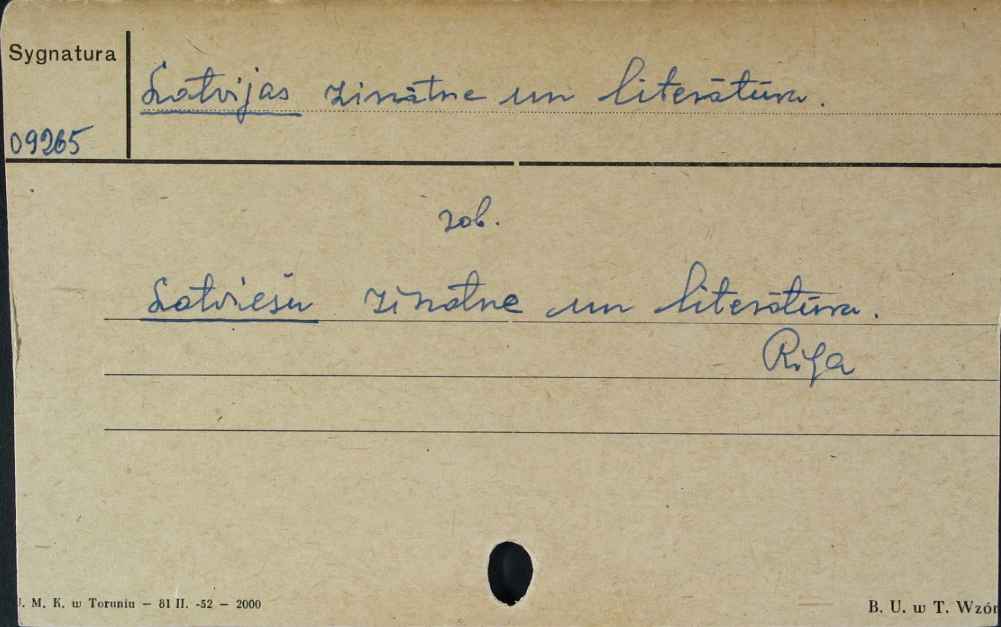 Sygnatura
Latvijas zinātne un literātūra.
09265
zob.
Latviešu zinātne un literātūra.
Riga
. M. K. w Toruniu — 81 II. -52 — 2000
B. U. w T. Wzór